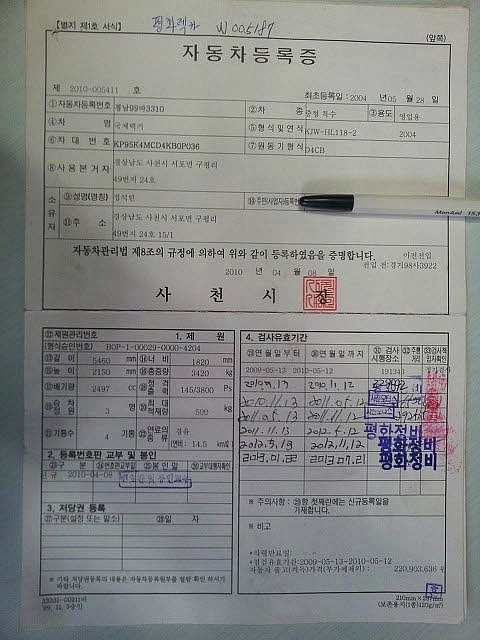 【별지 제1호 서식】 평화렉카 W005187 (앞쪽)
자동차등록증
제 2010-005411 호 최초등록일 : 2004 년 05 월 28 일
①자동차등록번호 경남99바3310 ②차 종 중형 특수 ③용도 영업용
④차 명 국제렉카 ⑤형식 및 연식 KJW-HL118-2 2004
⑥차 대 번 호 KP95K4MCD4KB0P036 ⑦원 동 기 형 식 D4CB
⑧사 용 본 거 지 경상남도 사천시 서포면 구평리
49번지 24호
소유자 ⑨성명(명칭) ⑩주민(사업자)등록번호
⑪주 소 경상남도 사천시 서포면 구평리
49번지 24호 15/1
자동차관리법 제8조의 규정에 의하여 위와 같이 등록하였음을 증명합니다. 이전전입
전입 전:경기98사3922
2010 년 04 월 08 일
사 천 시 장
⑫제원관리번호
(형식승인번호) B0P-1-00029-0000-4204
1. 제 원
⑬길 이 5460 mm ⑭너 비 1820 mm
⑮높 이 2150 mm 총중량 3420 kg
배기량 2497 cc 정격출력 145/3800 Ps
승차정원 3 명 최대적재량 500 kg
기통수 4 기통 연료의종류 경유
(연비: 14.5 km/ℓ)
2. 등록번호판 교부 및 봉인
구 분 번호판교부일 봉인일 교부대행자확인
신규 2010-04-08
3. 저당권 등록
구분(설정 또는 말소) 일 자
※ 기타 저당권등록의 내용은 자동차등록원부를 열람 확인 하시기
바랍니다.
33331-00211비
'99. 11. 5승인
4. 검사유효기간
연월일부터 연월일까지 검사시행장소 주행거리 검사책임자확인
2009-05-13 2010-05-12 191343
2010.11.13 2011.05.12
2011.05.13
2011.11.13 2012.5.12 평화정비
2012.5.13 2012.11.12 평화정비
2013.01.22 2013.07.21 평화정비
※ 주의사항 : 항 첫째란에는 신규등록일을
기재합니다.
※ 비고
*차령만료일: -
*점검유효기간:2009-05-13~2010-05-12
자동차 출고(취득)가격(부가세제외): 220,903,636 원
210mm×297mm
(보존용지(1종)120g/㎡)